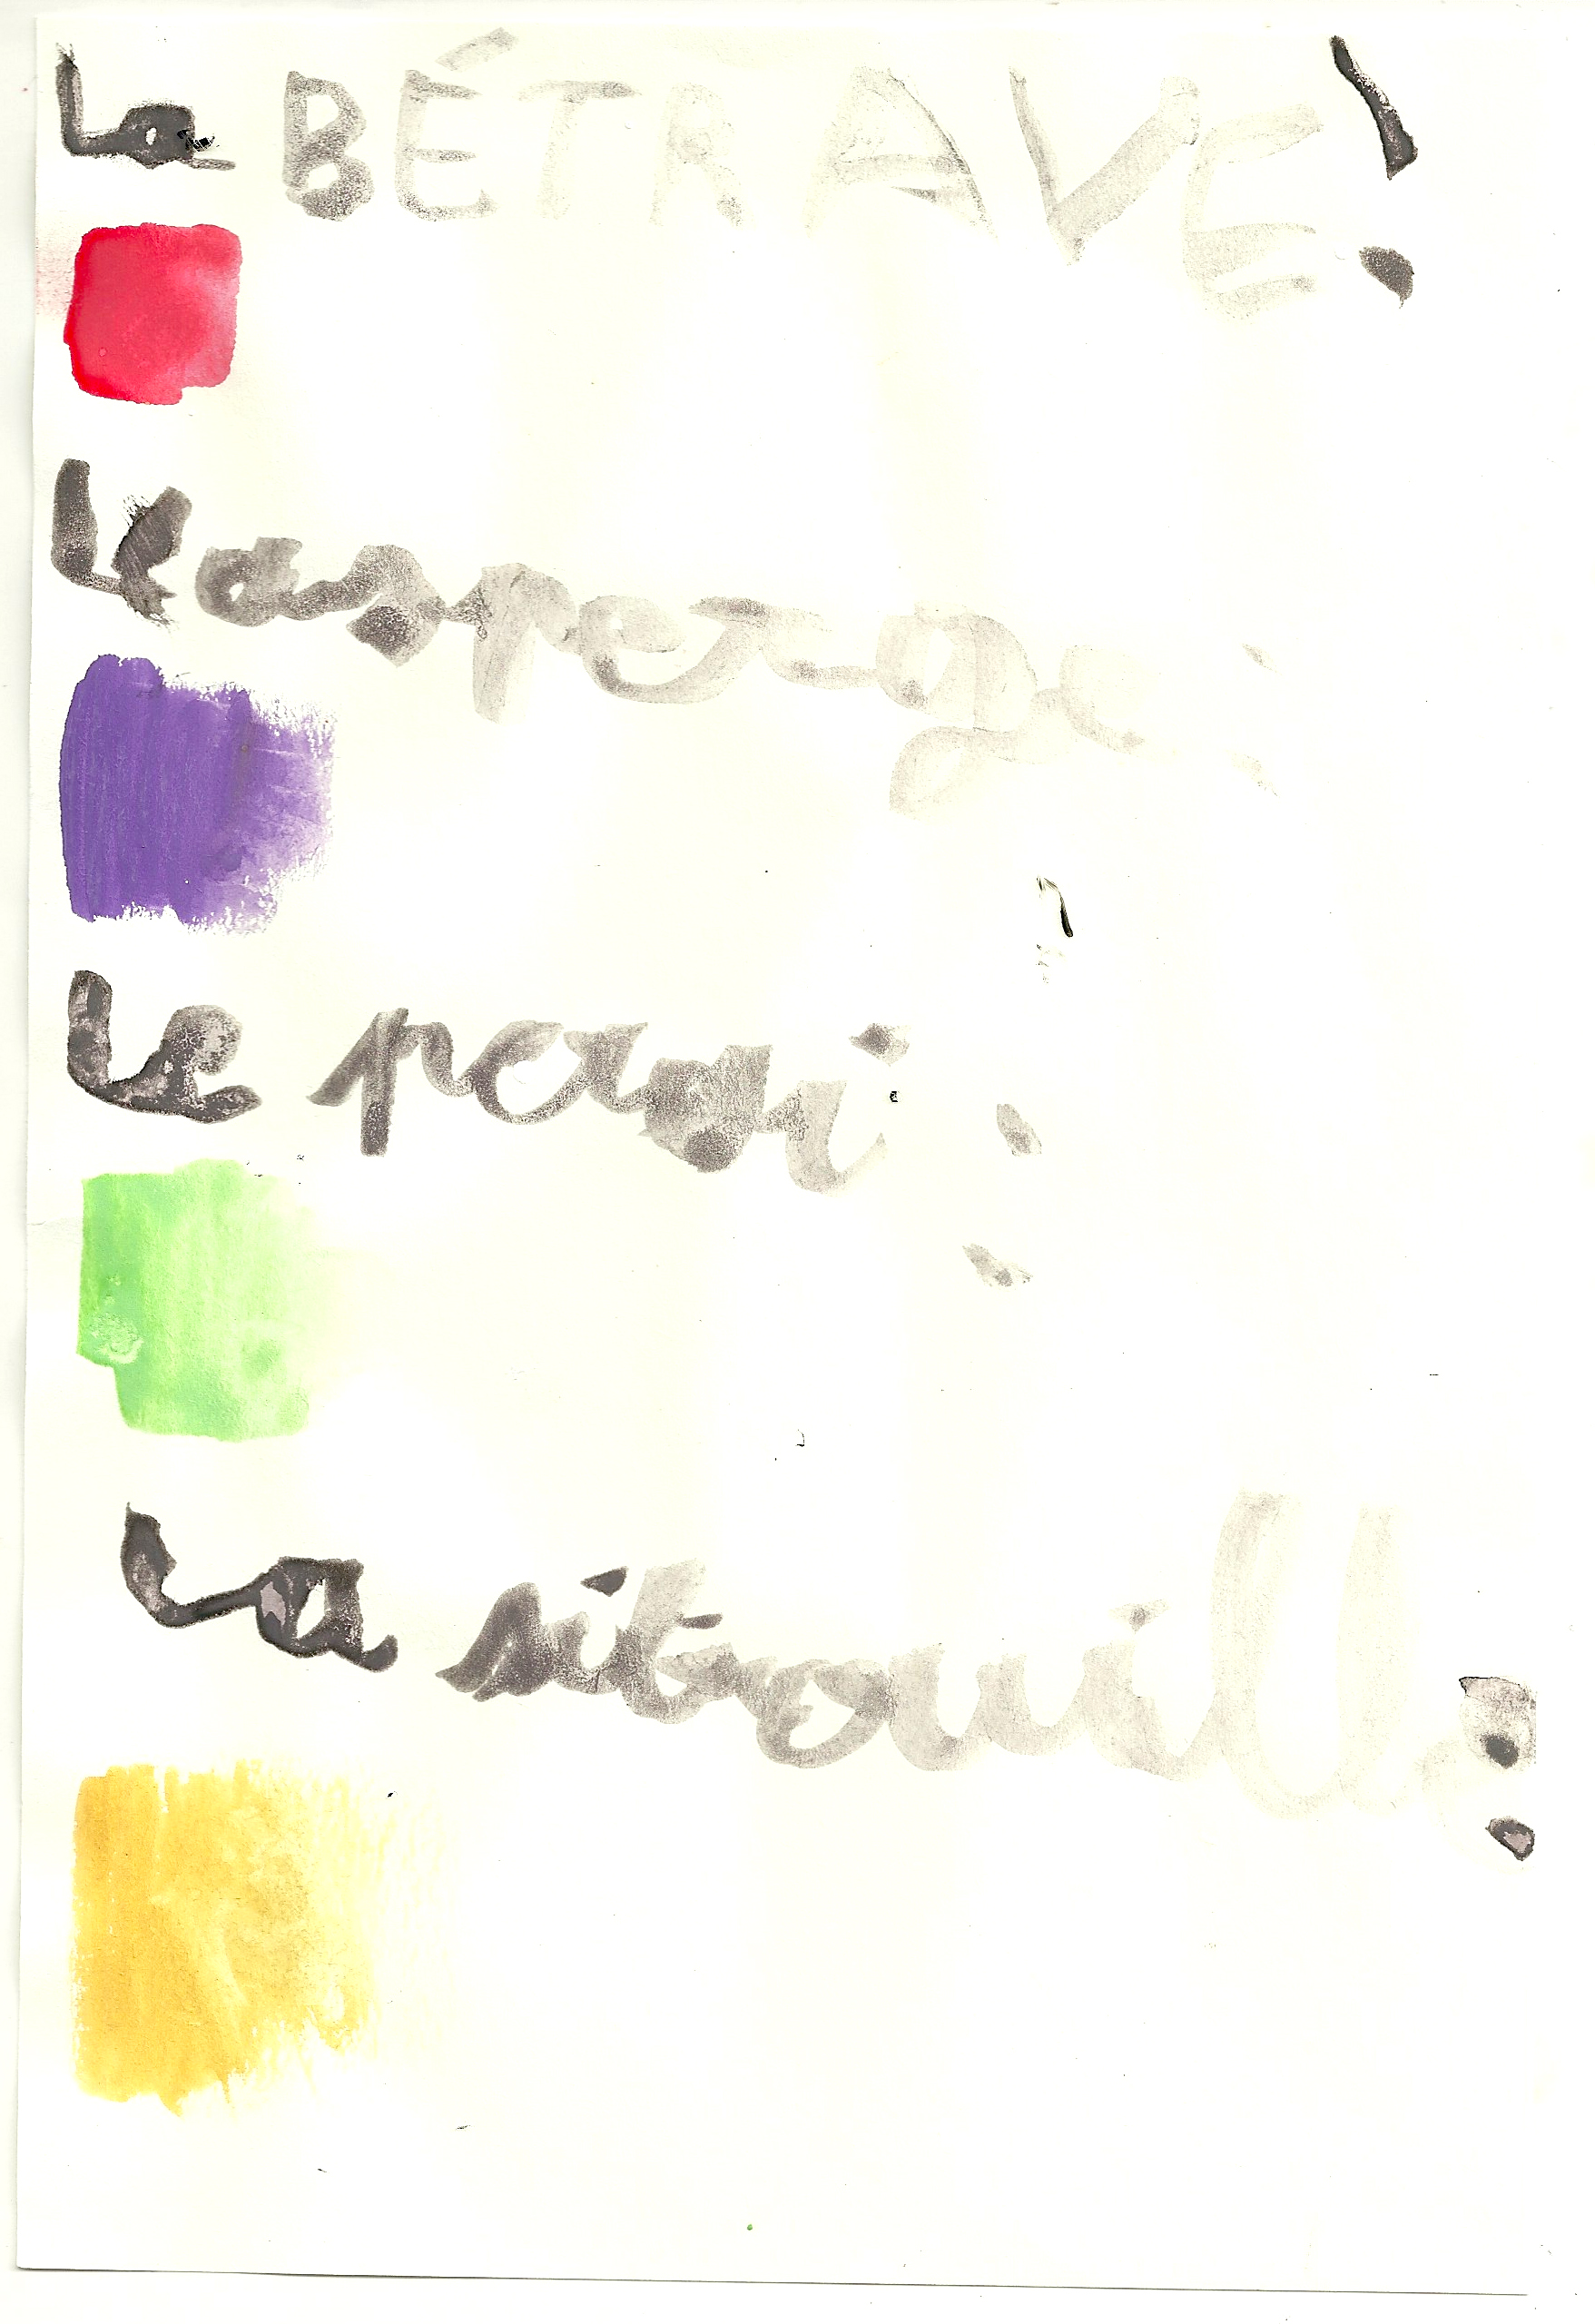 La BÉTRAVE !
L'asperge :
Le persi :
La sitrouille :